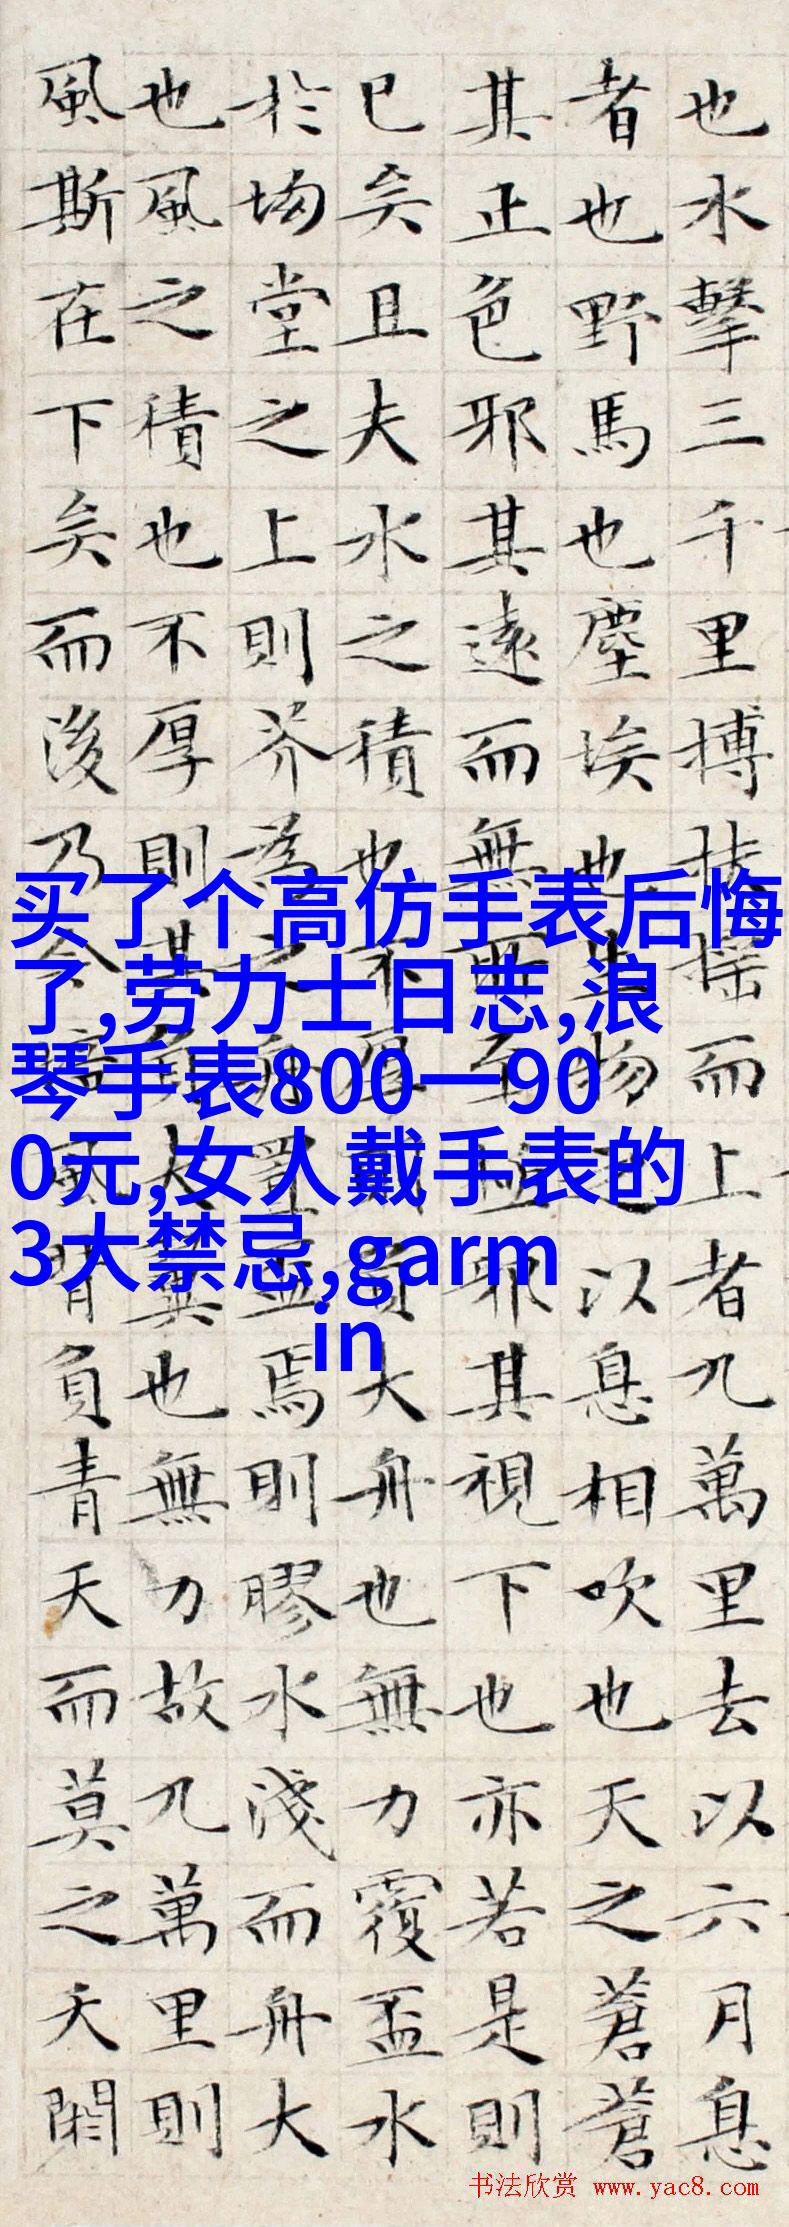 也水擊三千里搏扶搖而上者九萬里去以六月息
者也野馬也塵埃也生物之以息相吹也天之蒼蒼
其正色邪其遠而無所至極邪其視下也亦若是則
已矣且夫水之積也不厚則負大舟也無力覆盃水
於坳堂之上則芥為之舟置盃焉則膠水淺而舟大
也風之積也不厚則其負大翼也無力故九萬里則
風斯在下矣而後乃今培風背負青天而莫之夭閼
买了个高仿手表后悔
了,劳力士日志,浪
琴手表800一90
0元,女人戴手表的
3大禁忌,garm
in
书法欣赏 www.yac8.com